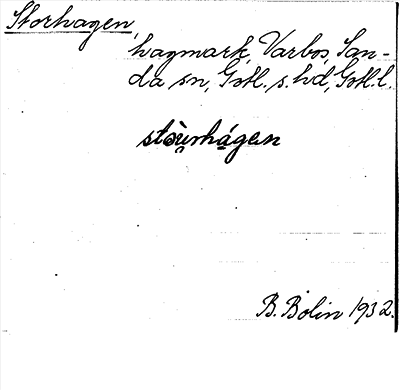 Storhagen,
hagmark, Varbos, San-
da sn, Gotl. s. hd, Gotl. l.
B. Bolin 1932.